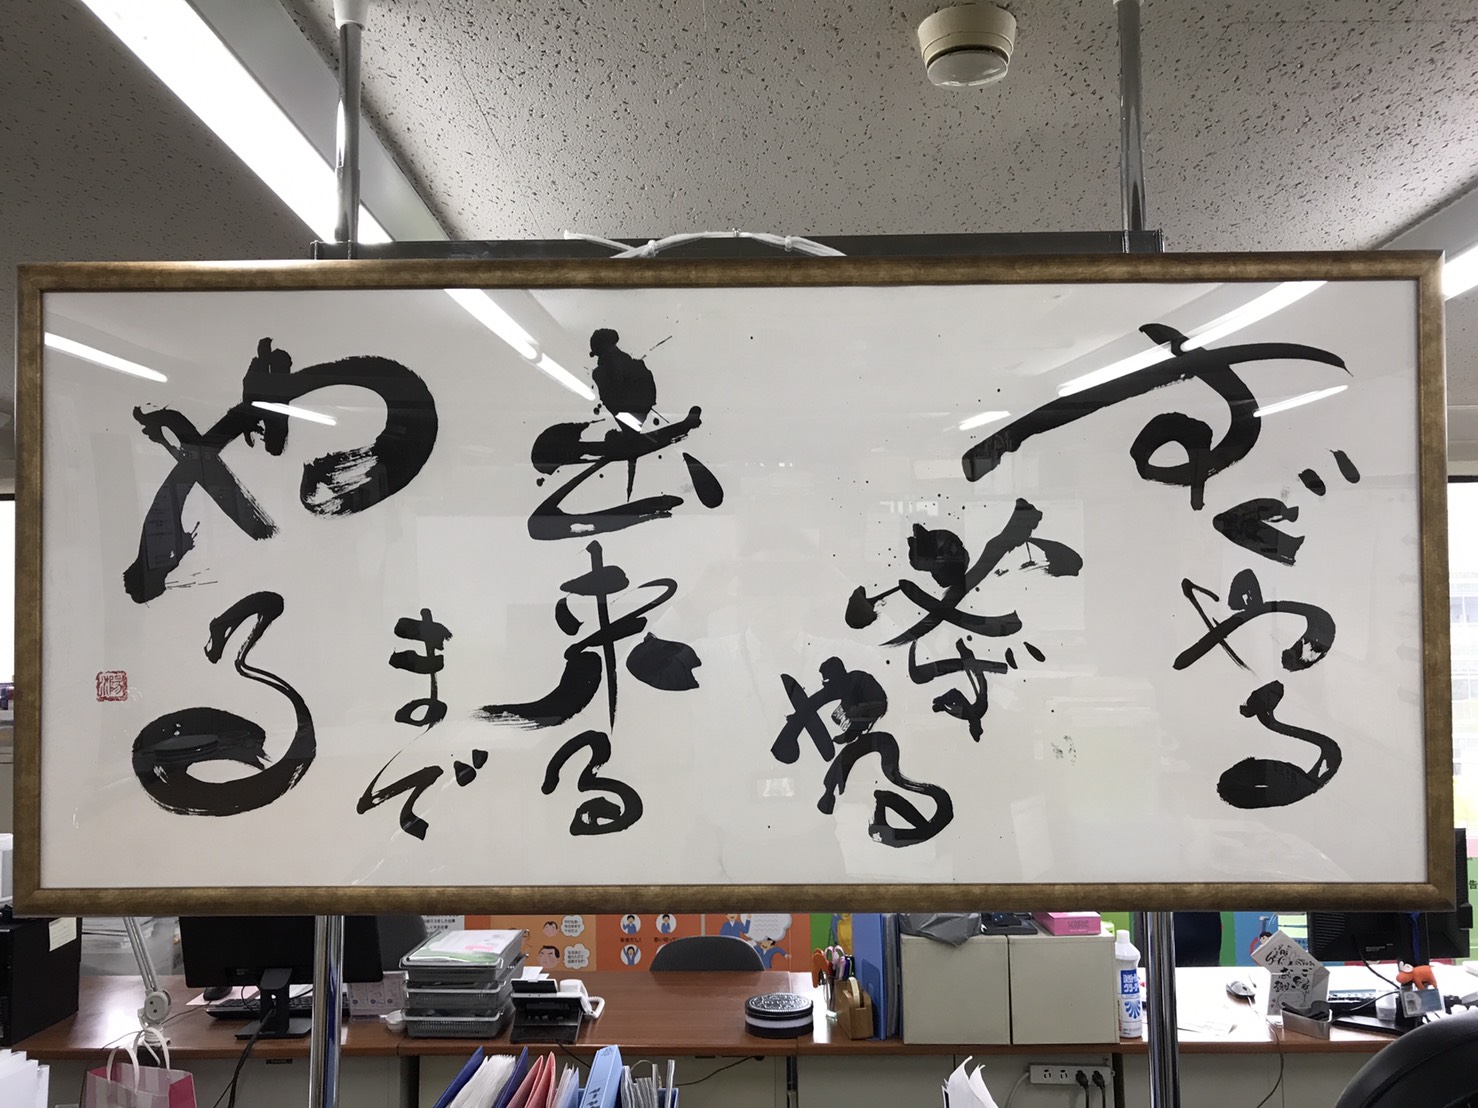 すぐやる
必ずやる
出来る
まで
やる